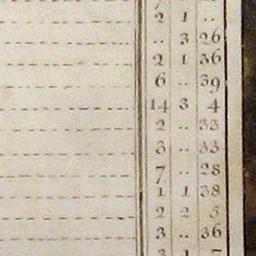 2 1 ..
.. 3 26
2 1 36
6 .. 39
14 3 4
2 .. 33
3 .. 33
7 .. 28
1 1 38
2 2 5
3 .. 36
3 1